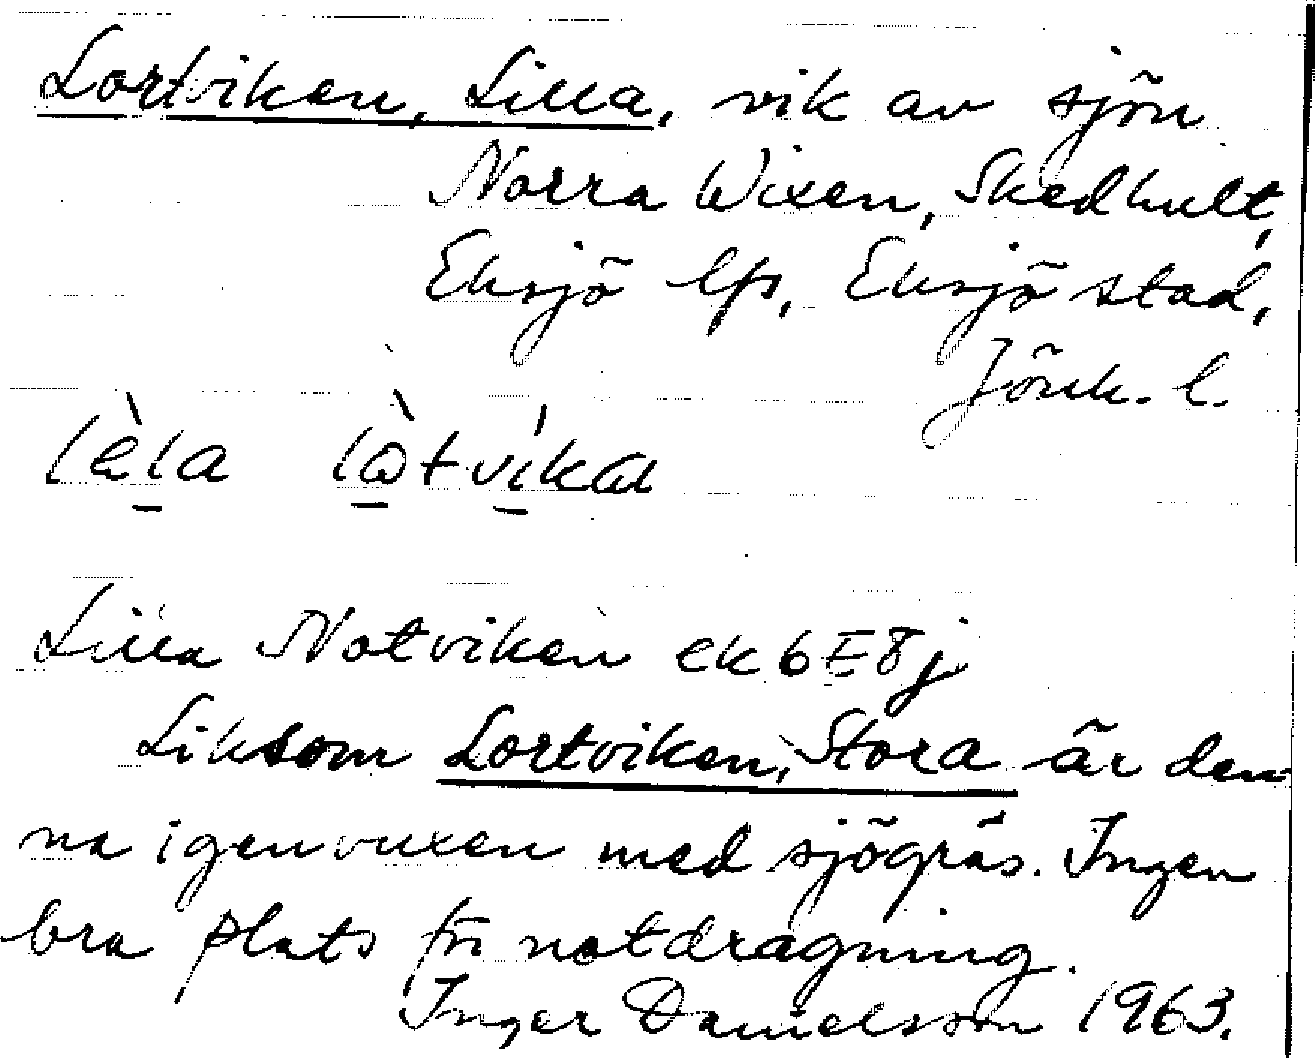 Lortviken, Lilla, vik av sjön
Norra Wixen, Skedhult,
Eksjö lfs, Eksjö stad,
Jönk. l.
lèla lòtvíkan
Lilla Notviken ek 6E8j
Liksom Lortviken, Stora är den-
na igenvuxen med sjögräs. Ingen
bra plats för notdragning.
Inger Danielsson 1963.